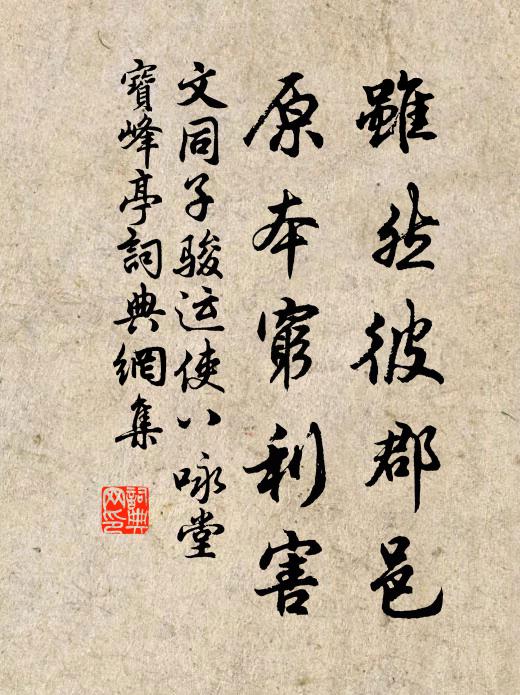 雖然彼郡邑
原本窮利害
文同子骏运使八咏堂
寶峰亭詞典網集
詞典网印